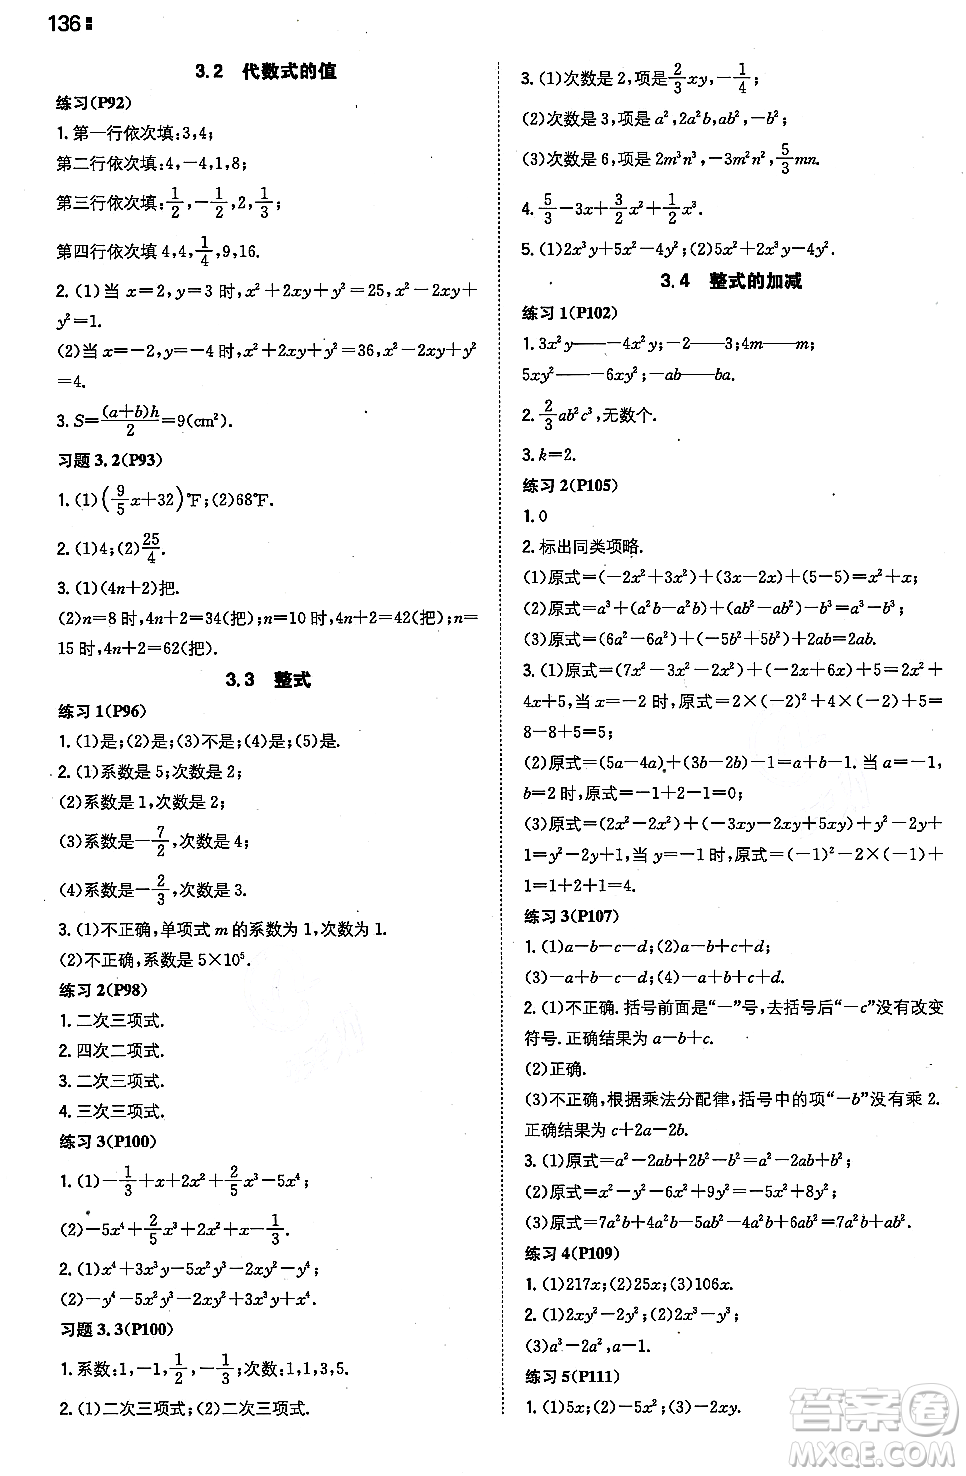 136
3.2 代数式的值
练习(P92)
1.第一行依次填:3,4;
第二行依次填:4,-4,1,8;
第三行依次填:1/2,-1/2,2,1/3;
第四行依次填4,4,1/4,9,16.
2.(1)当 x=2,y=3 时,x²+2xy+y²=25,x²-2xy+
y²=1.
(2)当 x=-2,y=-4 时,x²+2xy+y²=36,x²-2xy+y²
=4.
3.S=(a+b)h/2=9(cm²).
习题 3.2(P93)
1.(1)(9/5x+32)℉;(2)68℉.
2.(1)4;(2)25/4.
3.(1)(4n+2)把.
(2)n=8时,4n+2=34(把);n=10时,4n+2=42(把);n=
15时,4n+2=62(把).
3.3 整式
练习 1(P96)
1.(1)是;(2)是;(3)不是;(4)是;(5)是.
2.(1)系数是 5;次数是 2;
(2)系数是 1,次数是 2;
(3)系数是-7/2,次数是 4;
(4)系数是-2/3,次数是 3.
3.(1)不正确,单项式 m 的系数为 1,次数为 1.
(2)不正确,系数是 5×10⁵.
练习 2(P98)
1.二次三项式.
2.四次二项式.
3.二次三项式.
4.三次三项式.
练习 3(P100)
1.(1)-1/3+x+2x²+2/5x³-5x⁴;
(2)-5x⁴+2/5x³+2x²+x-1/3.
2.(1)x⁴+3x³y-5x²y²-2xy²-y⁴;
(2)-y⁴-5x²y²-2xy²+3x³y+x⁴.
习题 3.3(P100)
1.系数:1,-1,1/2,-1/3;次数:1,1,3,5.
2.(1)二次三项式;(2)二次三项式.
3.(1)次数是 2,项是2/3xy,-1/4;
(2)次数是 3,项是 a²,2a²b,ab²,-b²;
(3)次数是 6,项是 2m³n³,-3m²n²,5/3mn.
4.5/3-3x+3/2x²+1/2x³.
5.(1)2x³y+5x²-4y²;(2)5x²+2x³y-4y².
3.4 整式的加减
练习 1(P102)
1.3x²y——-4x²y;-2——3;4m——m;
5xy²——-6xy²;-ab——ba.
2.2/3ab²c³,无数个.
3.k=2.
练习 2(P105)
1.0
2.标出同类项略.
(1)原式=(-2x²+3x²)+(3x-2x)+(5-5)=x²+x;
(2)原式=a³+(a²b-a²b)+(ab²-ab²)-b³=a³-b³;
(3)原式=(6a²-6a²)+(-5b²+5b²)+2ab=2ab.
3.(1)原式=(7x²-3x²-2x²)+(-2x+6x)+5=2x²+
4x+5,当 x=-2 时,原式=2×(-2)²+4×(-2)+5=
8-8+5=5;
(2)原式=(5a-4a)+(3b-2b)-1=a+b-1,当 a=-1,
b=2 时,原式=-1+2-1=0;
(3)原式=(2x²-2x²)+(-3xy-2xy+5xy)+y²-2y+
1=y²-2y+1,当 y=-1 时,原式=(-1)²-2×(-1)+
1=1+2+1=4.
练习 3(P107)
1.(1)a-b-c-d;(2)a-b+c+d;
(3)-a+b-c-d;(4)-a+b+c-d.
2.(1)不正确.括号前面是“-”号,去括号后“-c”没有改变
符号.正确结果为 a-b+c.
(2)正确.
(3)不正确,根据乘法分配律,括号中的项“-b”没有乘 2.
正确结果为 c+2a-2b.
3.(1)原式=a²-2ab-ab+b²=a²-3ab+b²;
(2)原式=x²-y²-6x²+9y²=-5x²+8y²;
(3)原式=7a²b+4a²b-5ab²-4a²b+6ab²=7a²b+ab².
练习 4(P109)
1.(1)217x;(2)25x;(3)106x.
2.(1)2xy²-2y²;(2)2x³-y³;
(3)a³-2a²,a-1.
练习 5(P111)
1.(1)5x;(2)5x²;(3)-2xy.
答案圈
MXQE.COM